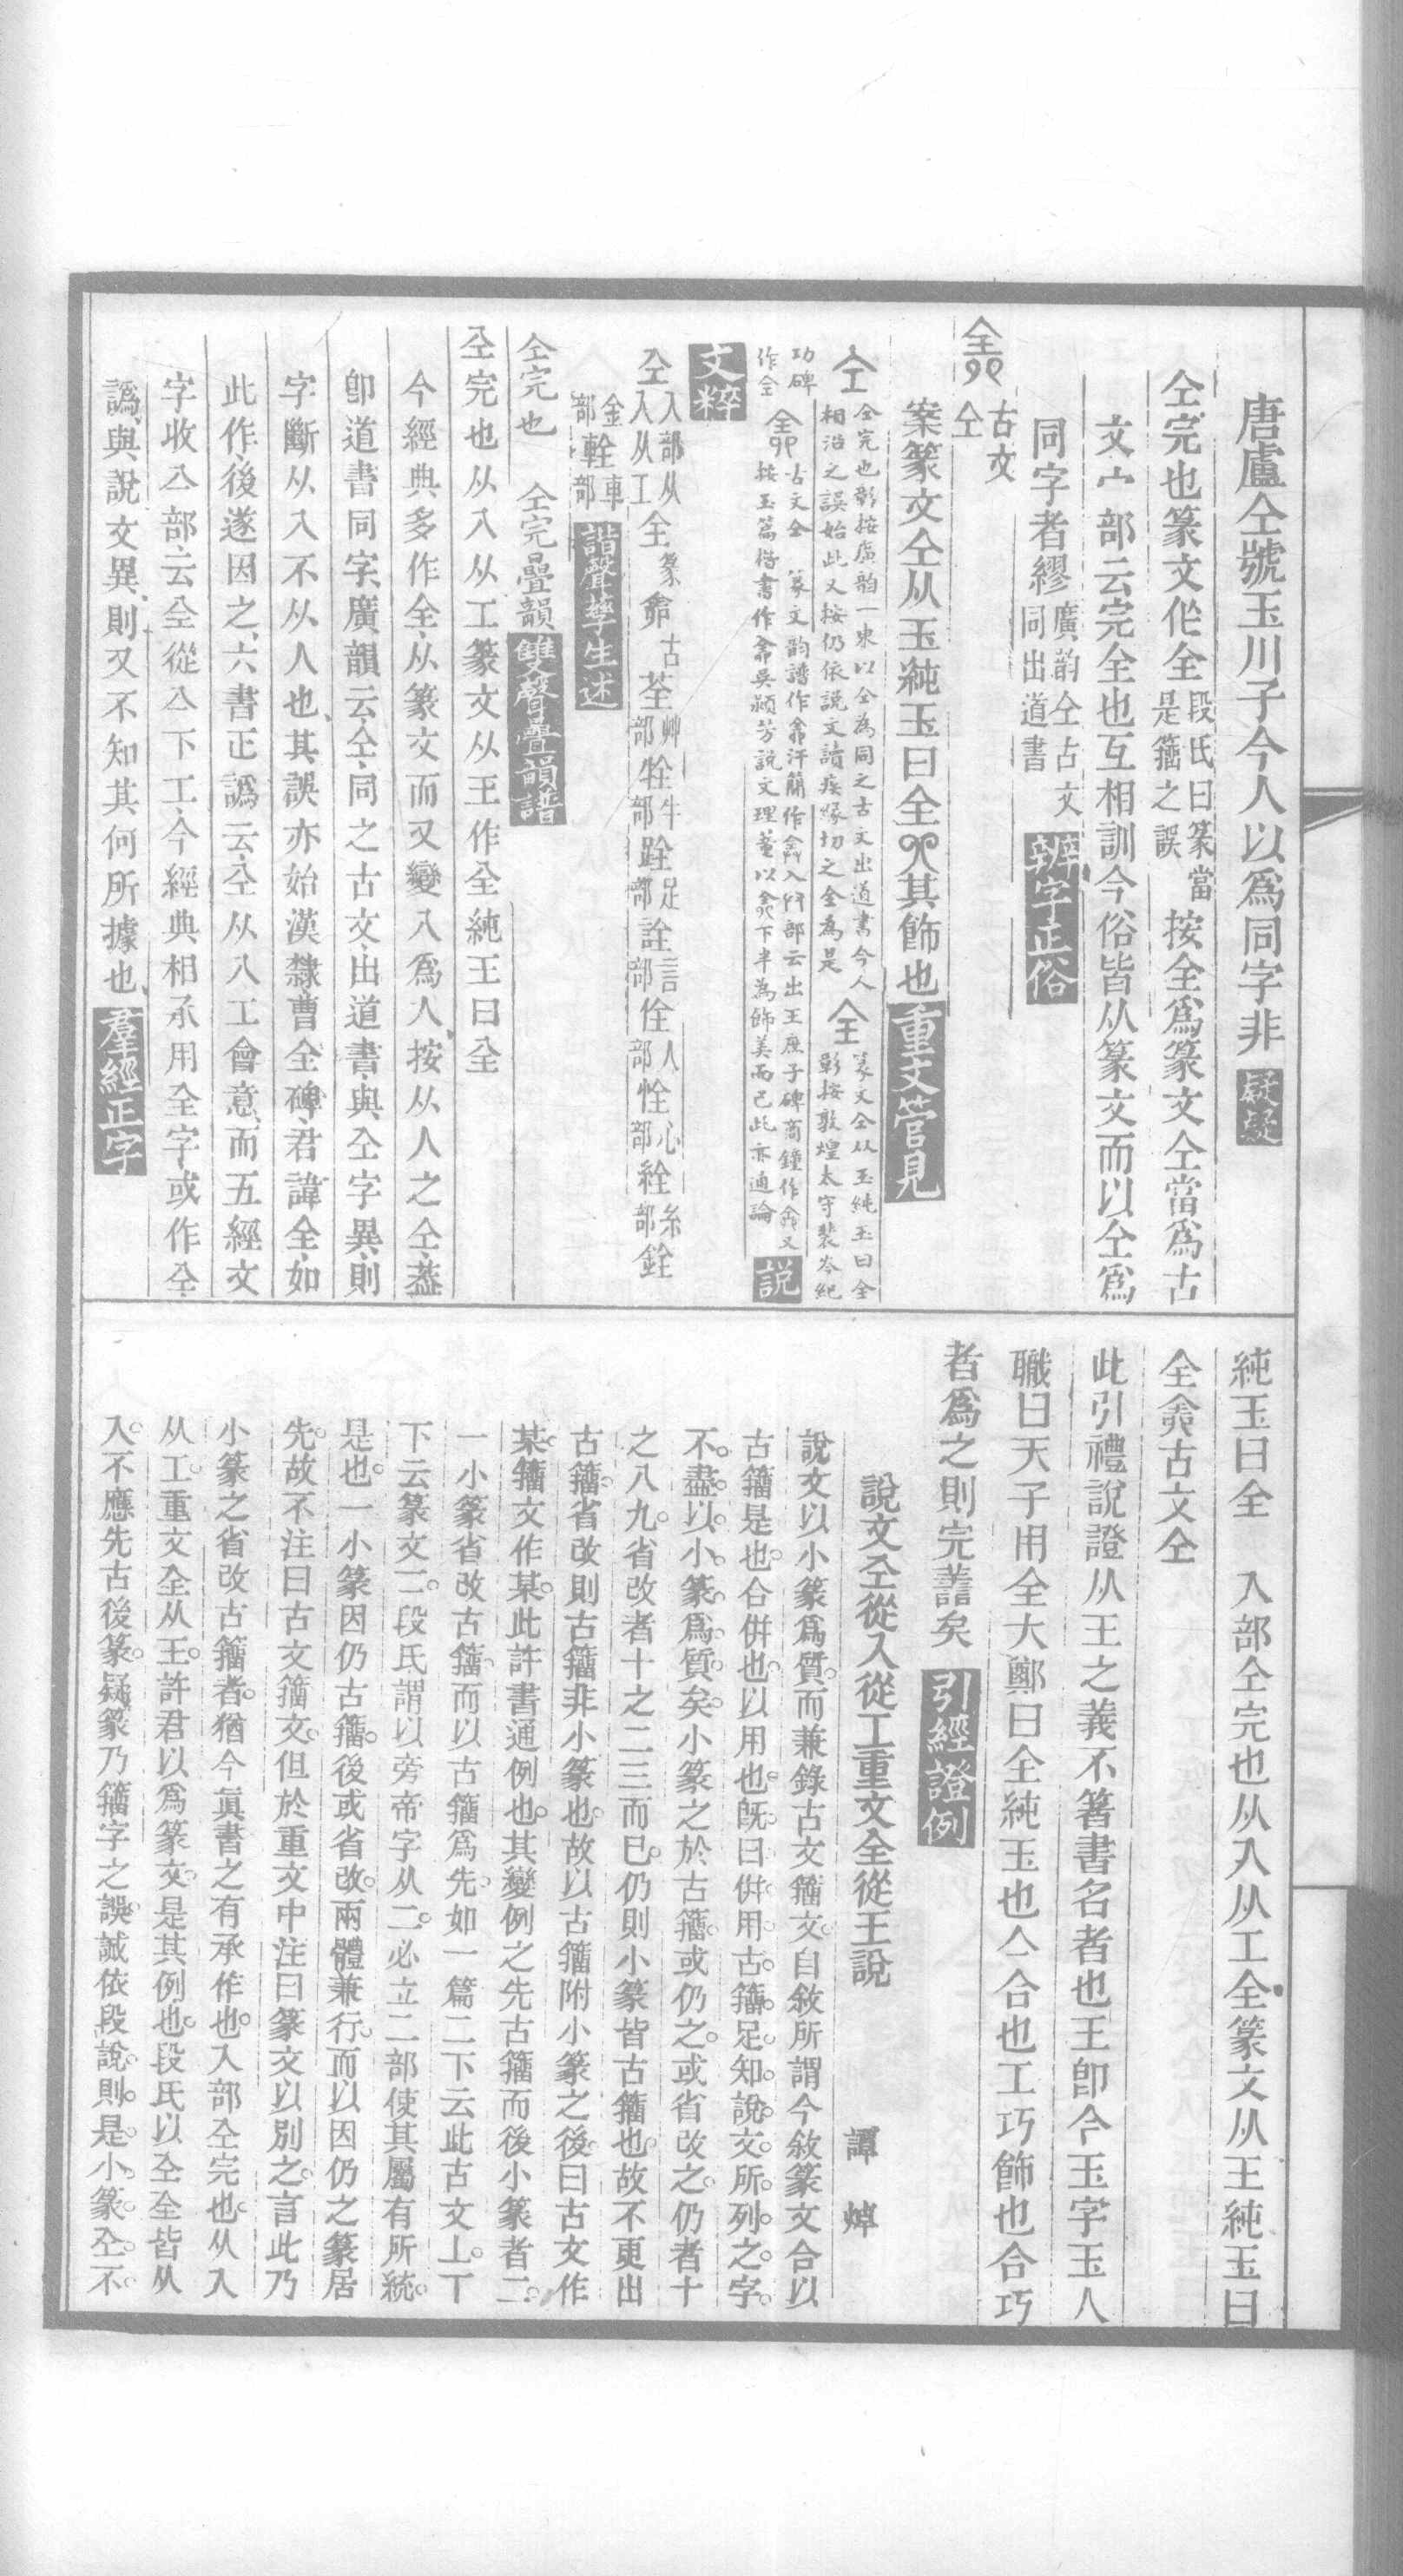 唐盧仝號玉川子今人以爲同字非 疑疑
仝完也篆文作全 段氏曰篆當是籒之誤 按全爲篆文仝當爲古
文宀部云完全也互相訓今俗皆从篆文而以仝爲
同字者繆 廣韵仝古文同出道書 辨字正俗
古文仝
案篆文仝从玉純玉曰全 其飾也 重文管見
仝 仝完也彰按廣韵一東以仝為同之古文出道書今人相沿之誤始此又按仍依説文讀疾緣切之全為是 全 篆文仝从玉純玉曰全 彰按敦煌太守裴岑紀
功碑作仝 古文仝
説
文粹
仝 入部从入从工 全篆 古 荃艸部 牷牛部 跧足部 詮言部 佺人部 恮心部 絟糸部 銓
金部 輇車部 諧聲孳生述
仝完也 仝完曡韻 雙聲疊韻譜
仝完也从入从工篆文从王作全純王曰全
今經典多作全从篆文而又變入爲人按从人之仝葢
卽道書同字廣韻云仝同之古文出道書與仝字異則
字斷从入不从人也其誤亦始漢隸曹全碑君諱全如
此作後遂因之六書正譌云仝从入工會意而五經文
字收亼部云全從亼下工今經典相承用全字或作仝
譌與說文異則又不知其何所據也 羣經正字
純玉曰全 入部仝完也从入从工全篆文从王純玉曰
全 古文仝
此引禮說證从王之義不箸書名者也王卽今玉字玉人
職曰天子用全大鄭曰全純玉也亼合也工巧飾也合巧
者爲之則完譱矣 引經證例
說文仝從入從工重文全從王說
譚焯
說文以小篆爲質而兼錄古文籒文自敘所謂今敘篆文合以
古籒是也合倂也以用也旣曰倂用古籒足知說文所列之字
不盡以小篆爲質矣小篆之於古籒或仍之或省改之仍者十
之八九省改者十之二三而已仍則小篆皆古籒也故不更出
古籒省改則古籒非小篆也故以古籒附小篆之後曰古文作
某籒文作某此許書通例也其變例之先古籒而後小篆者二
一小篆省改古籒而以古籒爲先如一篇二下云此古文丄丅
下云篆文二段氏謂以旁帝字从二必立二部使其屬有所統
是也一小篆因仍古籒後或省改兩體兼行而以因仍之篆居
先故不注曰古文籒文但於重文中注曰篆文以別之言此乃
小篆之省改古籒者猶今眞書之有承作也入部仝完也从入
从工重文全从王許君以爲篆文是其例也段氏以仝全皆从
入不應先古後篆疑篆乃籒字之誤誠依段說則是小篆仝不